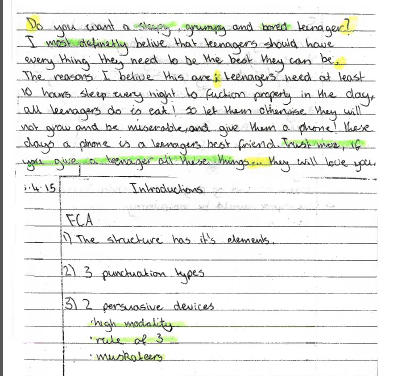 Do you want a sleepy, grumpy and bored teenager?
I most definetly belive that teenagers should have
every thing they need to be the best they can be.
The reasons I belive this are; teenagers need at least
10 hours sleep every night to fuction properly in the day,
all teenagers do is eat! so let them otherwise they will
not grow and be miserable, and give them a phone! these
days a phone is a teenagers best friend. Trust me, If
you give a teenager all these things... they will love you.
.4.15 Introductions
FCA
1) The structure has it's elements.
2) 3 punctuation types
3) 2 persuasive devices
· high modality
· rule of 3
· musketeers